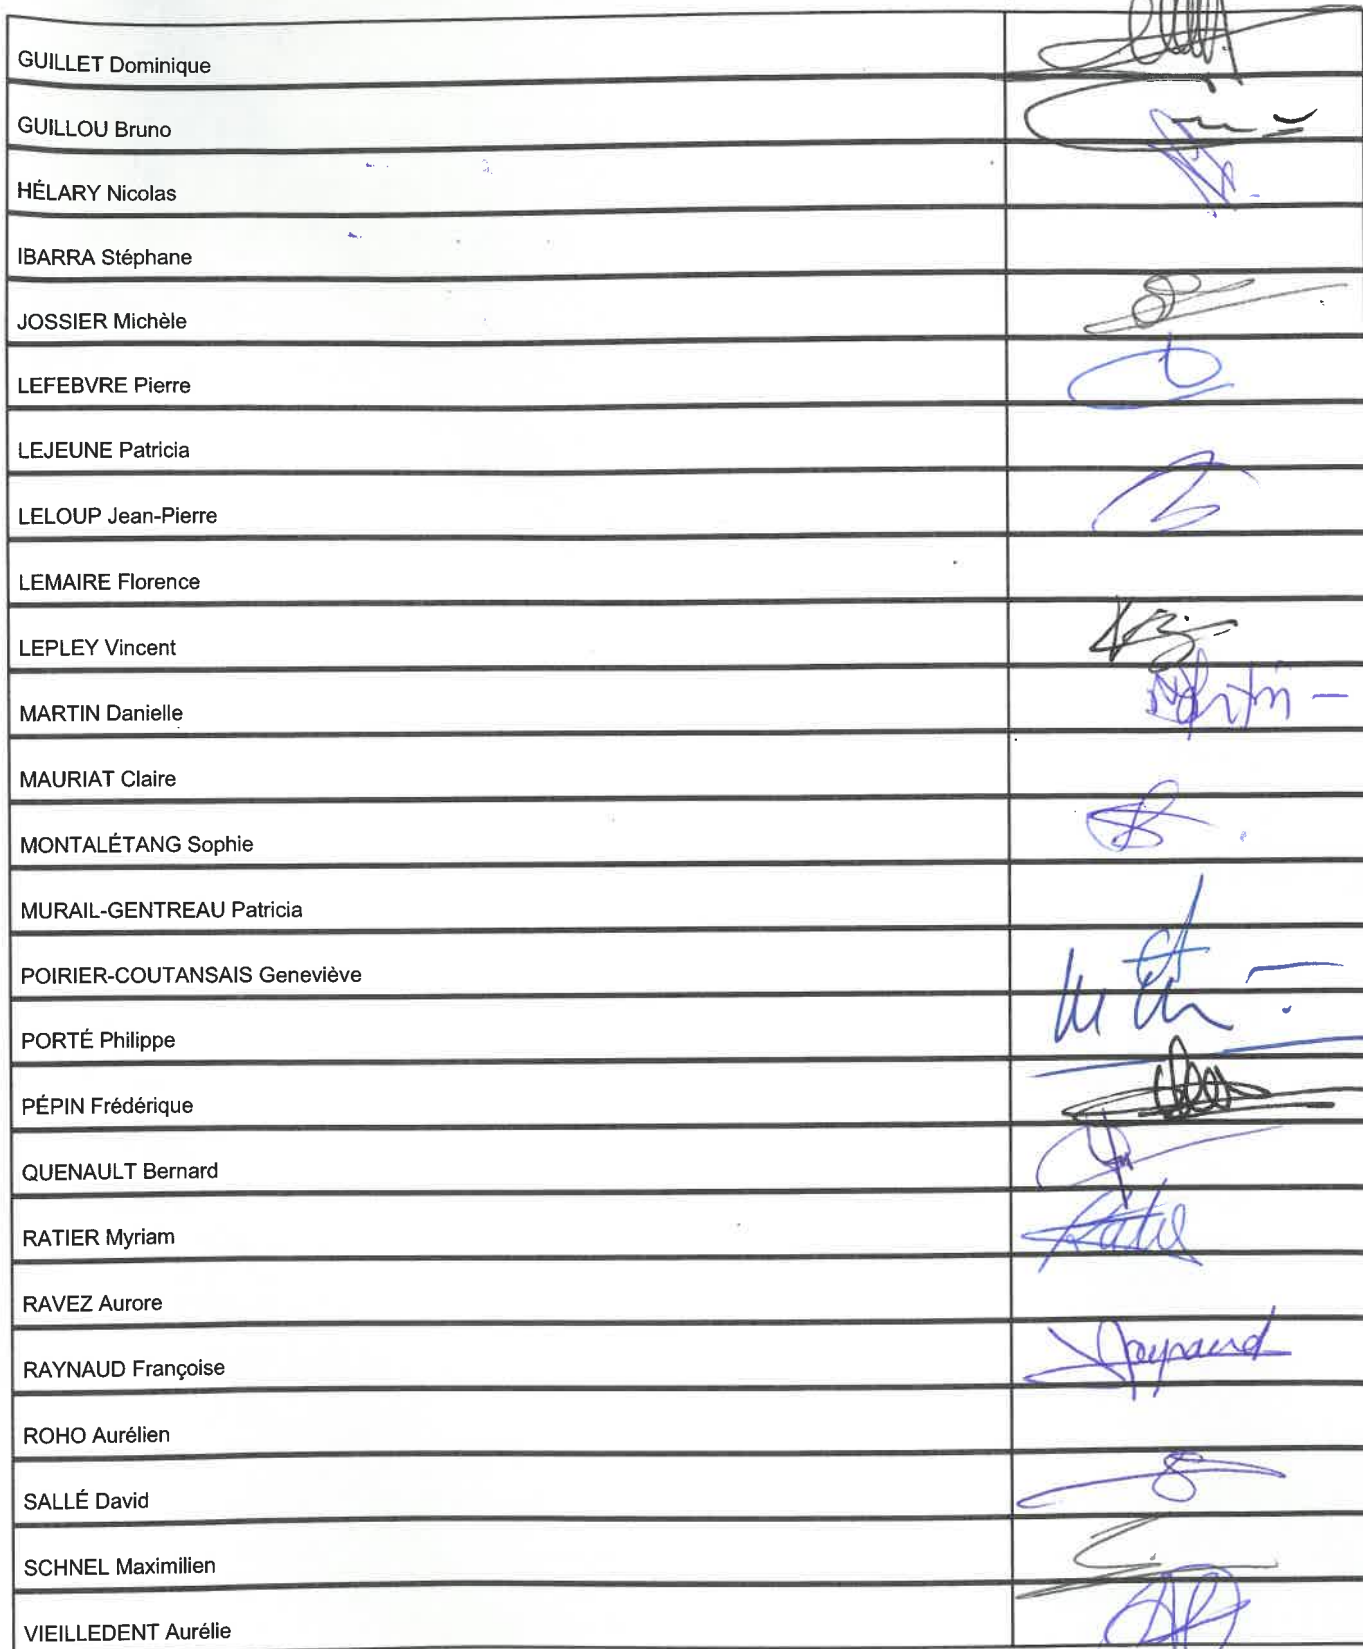 GUILLET Dominique
GUILLOU Bruno
HÉLARY Nicolas
IBARRA Stéphane
JOSSIER Michèle
LEFEBVRE Pierre
LEJEUNE Patricia
LELOUP Jean-Pierre
LEMAIRE Florence
LEPLEY Vincent
MARTIN Danielle Martin
MAURIAT Claire
MONTALÉTANG Sophie
MURAIL-GENTREAU Patricia
POIRIER-COUTANSAIS Geneviève
PORTÉ Philippe
PÉPIN Frédérique
QUENAULT Bernard
RATIER Myriam
RAVEZ Aurore
RAYNAUD Françoise Raynaud
ROHO Aurélien
SALLÉ David
SCHNEL Maximilien
VIEILLEDENT Aurélie